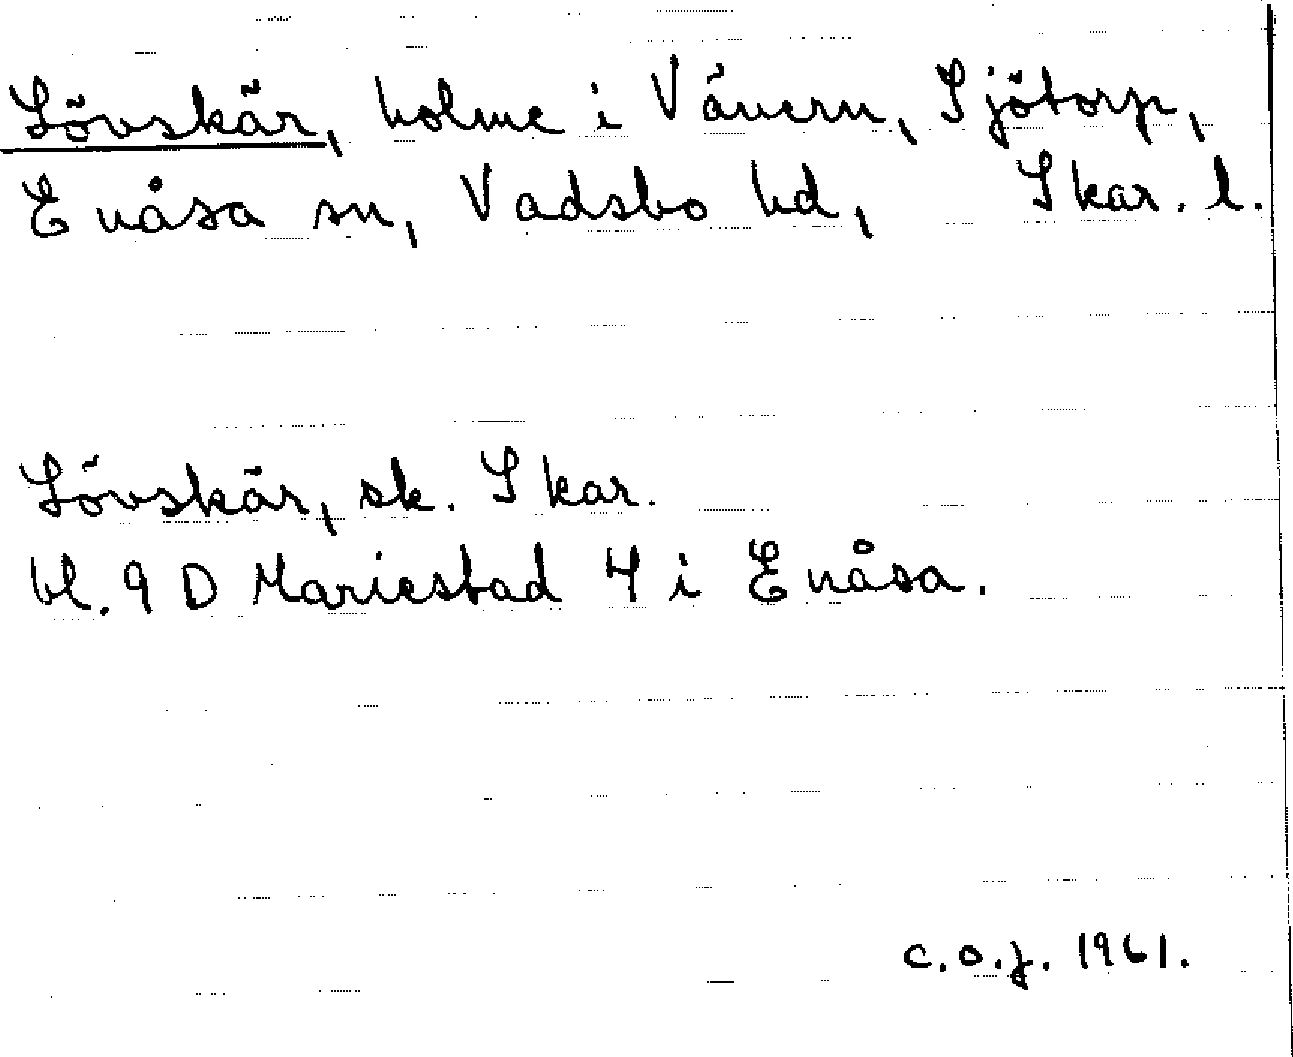 Lövskär, holme i Vänern, Sjötorp,
Enåsa sn, Vadsbo hd, Skar. l.
Lövskär, sk. Skar.
bl. 9 D Mariestad 4 i Enåsa.
C.O.J. 1961.